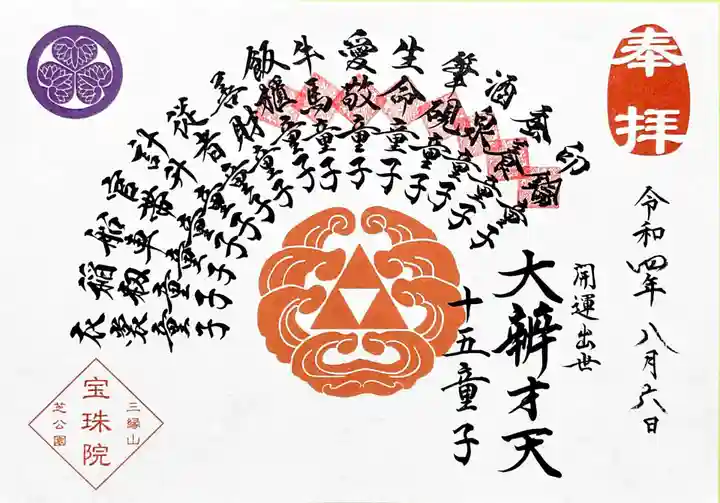 奉拝
令和四年八月六日
開運出世
大辨才天
十五童子
印鑰童子
官帯童子
筆硯童子
金財童子
稲籾童子
計升童子
飯櫃童子
衣裳童子
蚕養童子
酒泉童子
愛敬童子
生命童子
従者童子
牛馬童子
船車童子
善財童子
三縁山
宝珠院
芝公園